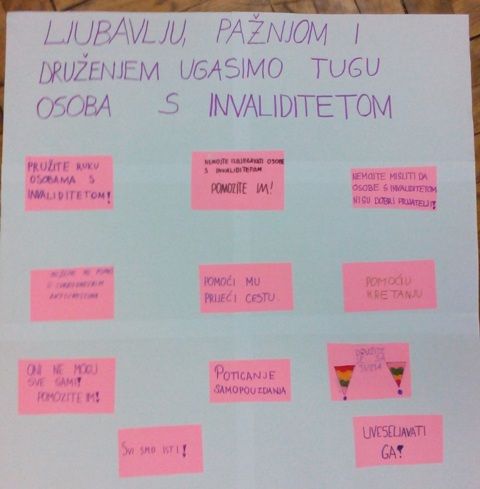 LJUBAVLJU, PAŽNJOM I
DRUŽENJEM UGASIMO TUGU
OSOBA S INVALIDITETOM
PRUŽITE RUKU
OSOBAMA S
INVALIDITETOM!
NEMOJTE IZBJEGAVATI OSOBE
S INVALIDITETOM
POMOZITE IM!
NEMOJTE MISLITI DA
OSOBE S INVALIDITETOM
NISU DOBRI PRIJATELJI!
POMOĆI MU
PRIJEĆI CESTU
POMOĆ U
KRETANJU
ONI NE MOGU
SVE SAMI!
POMOZITE IM!
POTICANJE
SAMOPOUZDANJA
DRUŽITE
SE SA
SVI SMO ISTI!
UVESELJAVATI
GA!